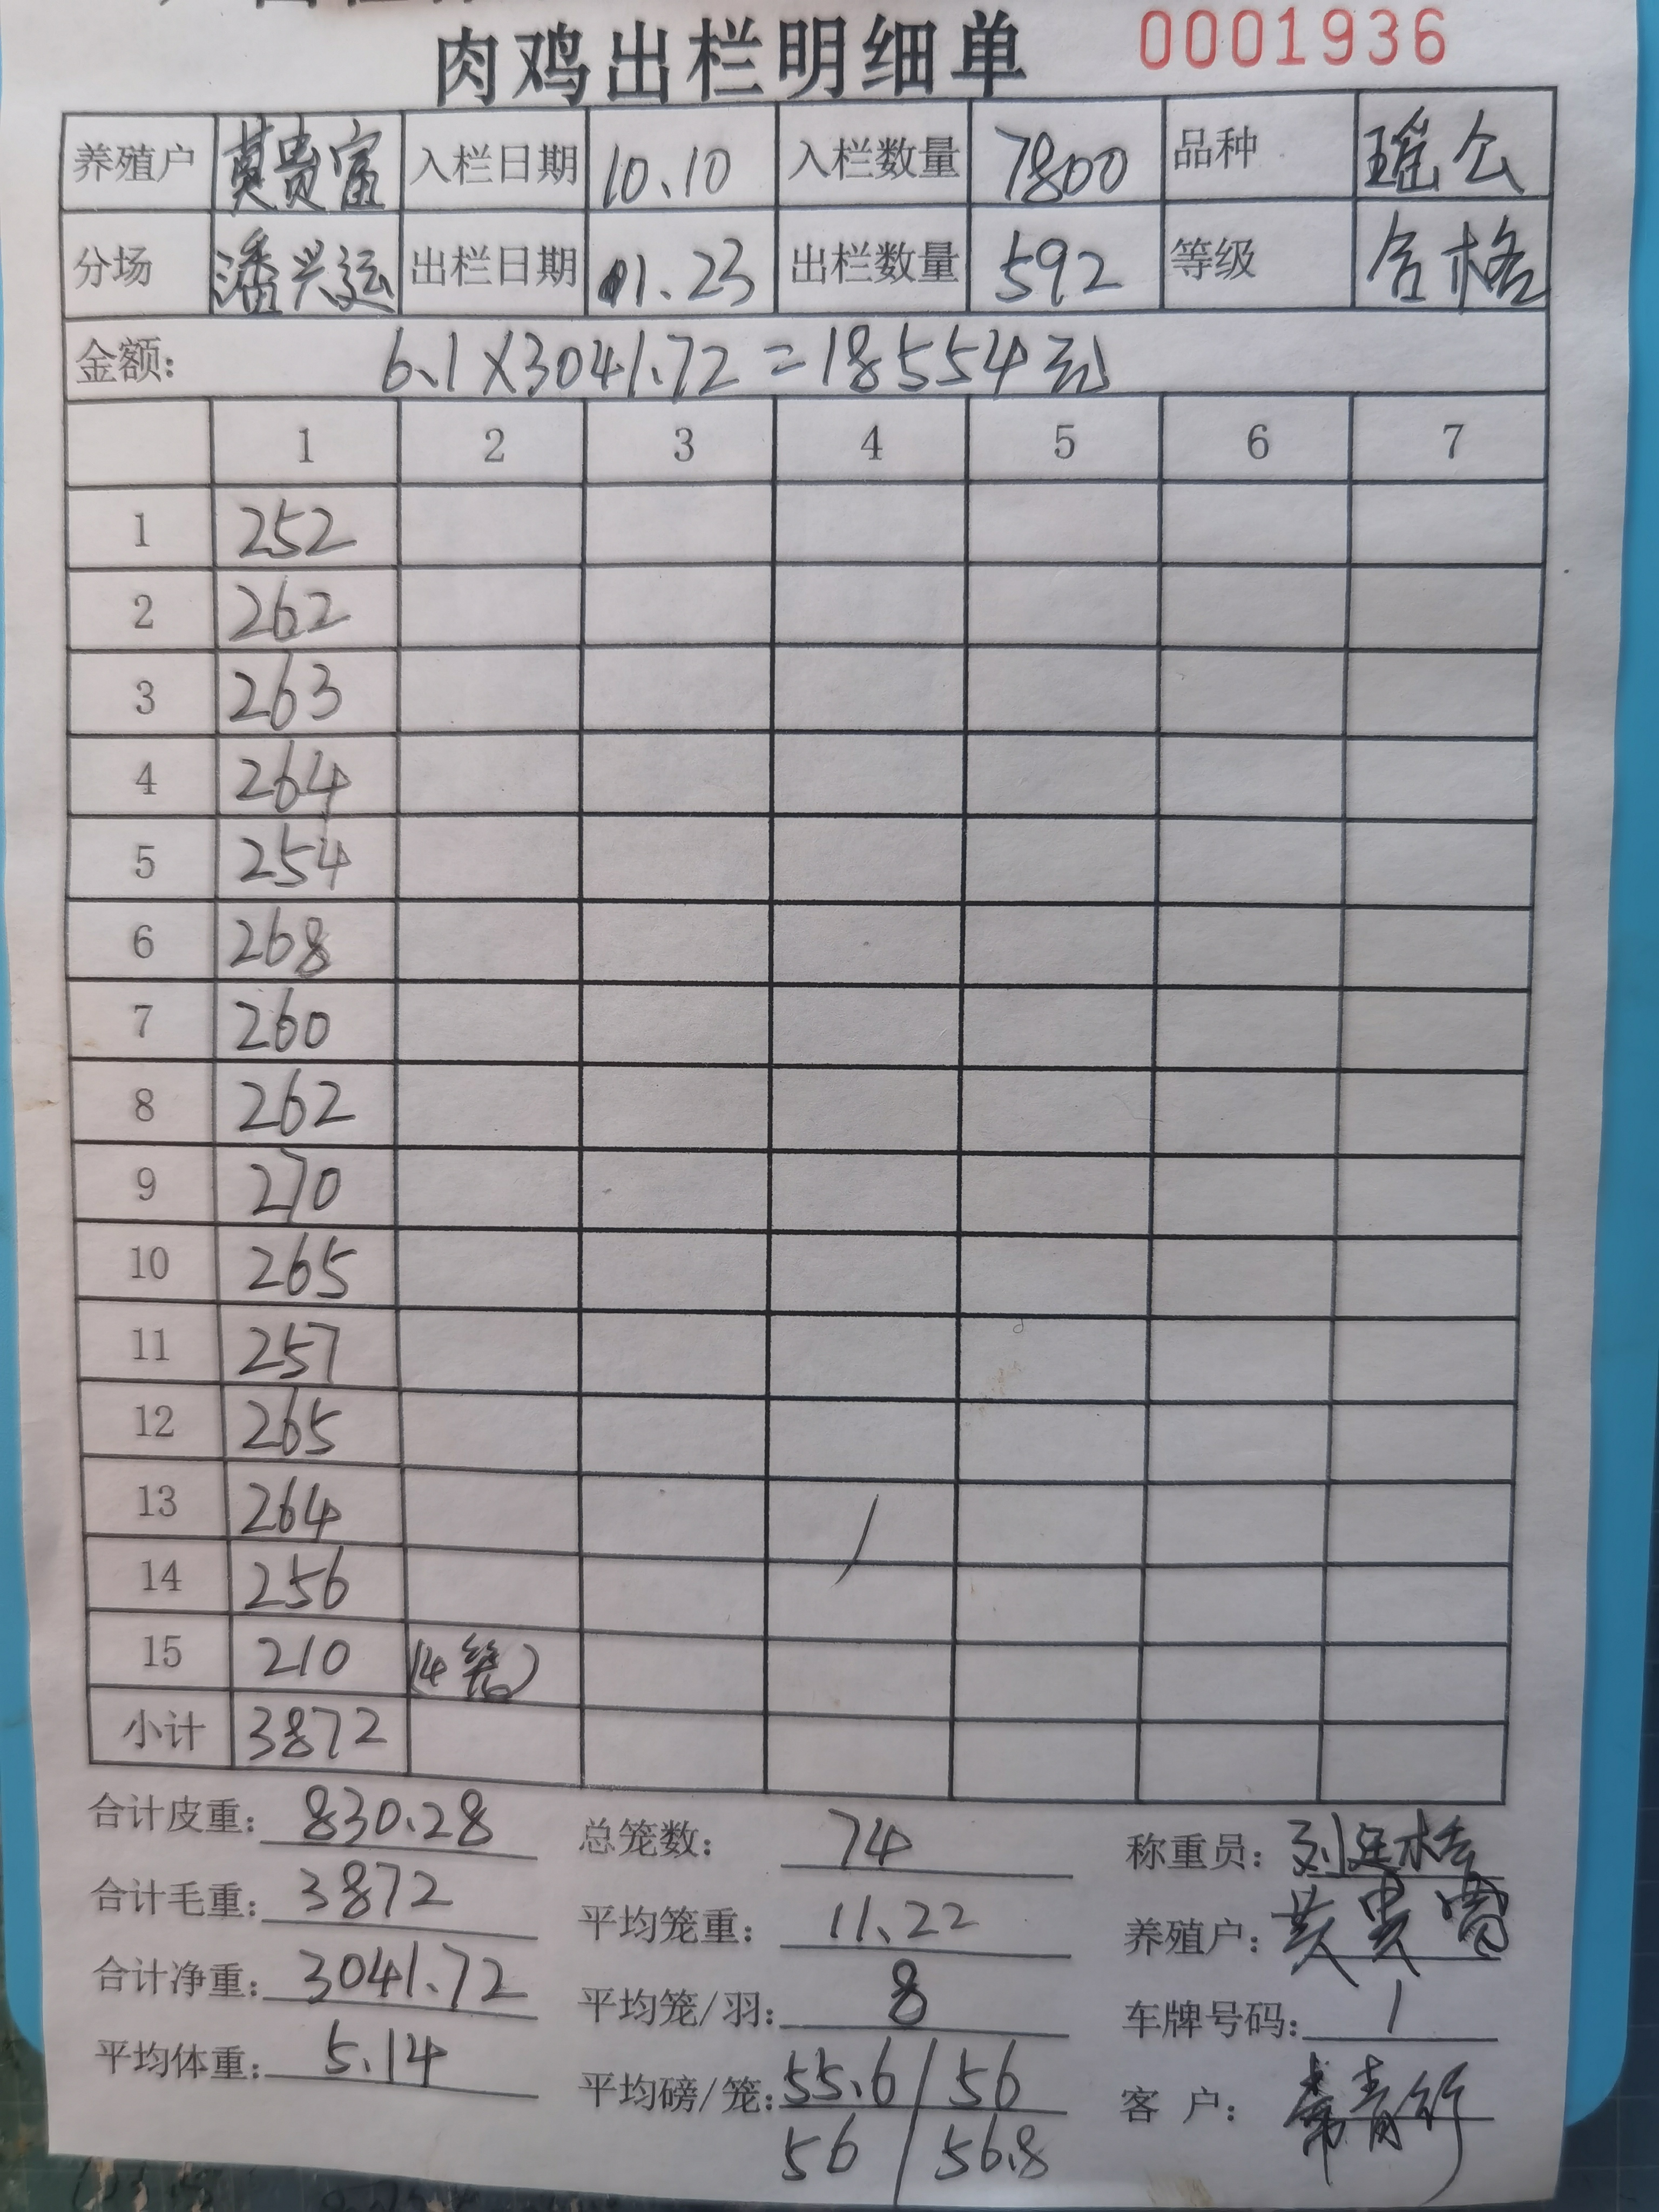 肉鸡出栏明细单 0001936
养殖户 莫贵富 入栏日期 10.10 入栏数量 7800 品种 瑶公
分场 潘兴运 出栏日期 01.23 出栏数量 592 等级 合格
金额: 6.1×3041.72=18554元
1 2 3 4 5 6 7
1 252
2 262
3 263
4 264
5 254
6 268
7 260
8 262
9 270
10 265
11 257
12 265
13 264
14 256
15 210 (4笼)
小计 3872
合计皮重: 830.28 总笼数: 74 称重员:
合计毛重: 3872 平均笼重: 11.22 养殖户: 莫贵富
合计净重: 3041.72 平均笼/羽: 8 车牌号码: 1
平均体重: 5.14 平均磅/笼: 55.6/56 客户:
56/56.8